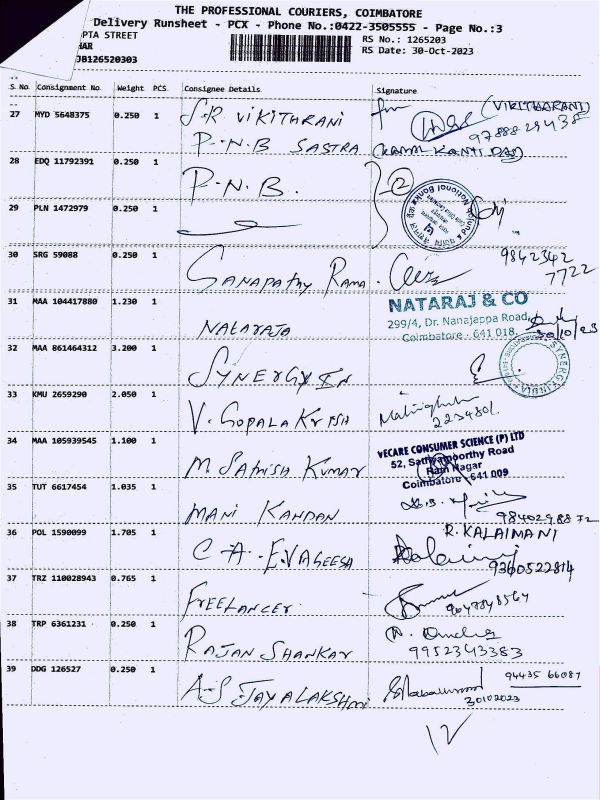 THE PROFESSIONAL COURIERS, COIMBATORE
Delivery Runsheet - PCX - Phone No.:0422-3505555 - Page No.:3
PTA STREET
HAR
JB126520303
RS No.: 1265203
RS Date: 30-Oct-2023
S. No. Consignment No. Weight PCS Consignee Details Signature
27 MYD 5648375 0.250 1 S.R VIKITHRANI for (VIKITHARANI)
P.N.B SASTRA 9788829438
(KAMAL KANTI DAS)
28 EDQ 11792391 0.250 1 P.N.B. 2
29 PLN 1472979 0.250 1
National Bank
30 SRG 59088 0.250 1 GANAPATHY RAMA. 9842342
7722
31 MAA 104417880 1.230 1 NATARAJA
NATARAJ & CO
299/4, Dr. Nanajappa Road,
Coimbatore - 641 018.
30/10/23
32 MAA 861464312 3.200 1 SYNERGY IN
SYNERGY INDIA
33 KMU 2659290 2.050 1 V. GOPALAKRISH
2234801
34 MAA 105939545 1.100 1 M SATHISH KUMAR
VECARE CONSUMER SCIENCE (P) LTD
52, Sathyamoorthy Road
Ram Nagar
Coimbatore - 641 009
35 TUT 6617454 1.035 1 MANI KANDAN
9840298872
36 POL 1590099 1.705 1 C A. E.VAGEESH R. KALAIMANI
9360522814
37 TRZ 110028943 0.765 1 FREELANCER
9047848564
38 TRP 6361231 0.250 1 RAJAN SHANKAR
9952343383
39 DDG 126527 0.250 1 A.S JAYALAKSHMI
94435 66087
30102023
12